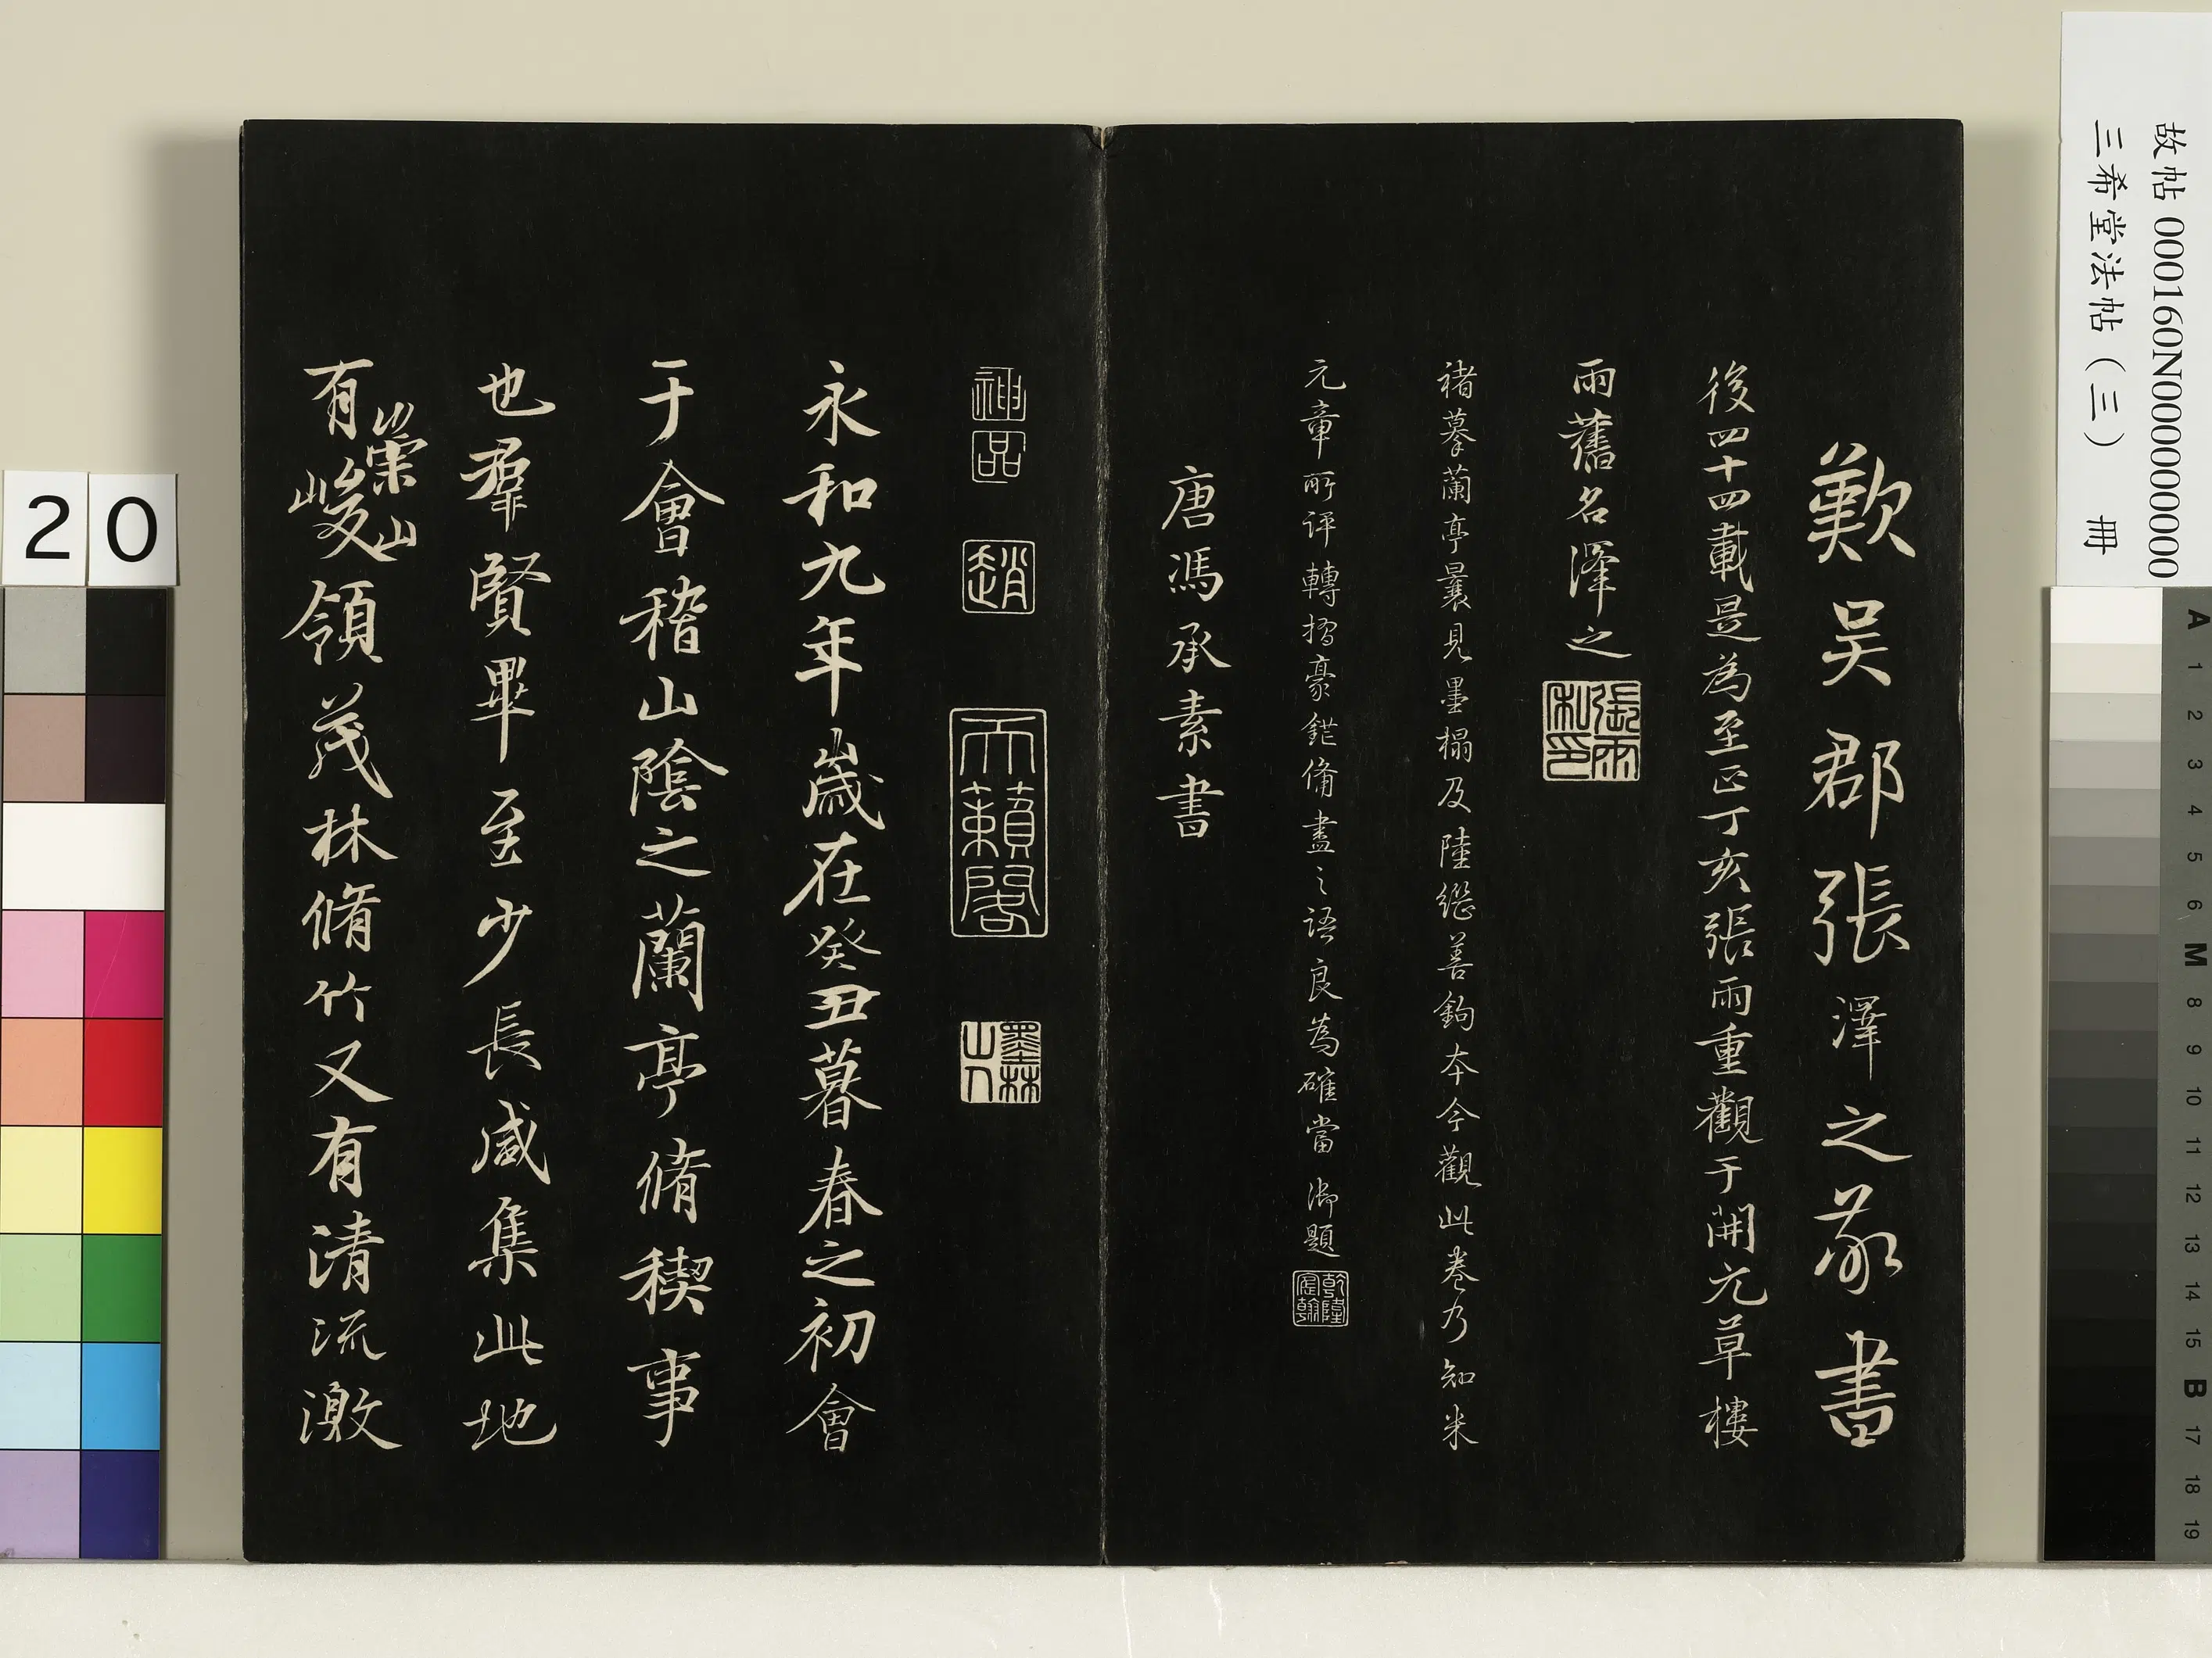 歎吴郡張澤之敬書
後四十四載是為至正丁亥張雨重觀于開元草樓
雨舊名澤之
張雨私印
褚摹蘭亭曩見墨榻及陸繼善鉤本今觀此卷乃知米
元章所評轉摺豪鋩備盡之語良為確當 御題
乾隆宸翰
唐馮承素書
神品
趙
天籟閣
墨林山人
永和九年歲在癸丑暮春之初會
于會稽山陰之蘭亭脩稧事
也羣賢畢至少長咸集此地
有崇山峻領茂林脩竹又有清流激
故帖 000160N000000000
三希堂法帖(三) 冊
20
A 1 2 3 4 5 6 M 8 9 10 11 12 13 14 15 B 17 18 19